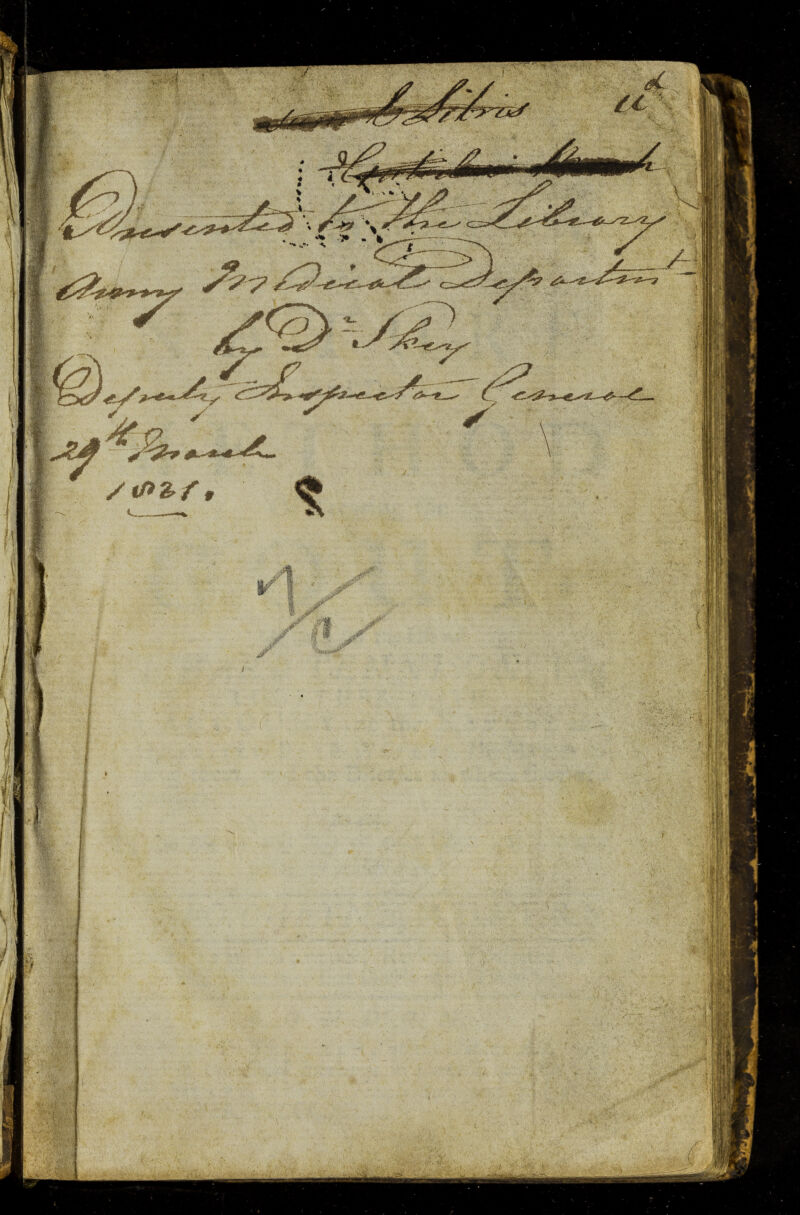 E Libris
Presented to the Library
Army Medical Departmt
by Dr Skey
Deputy Inspector General
29th March
1831.